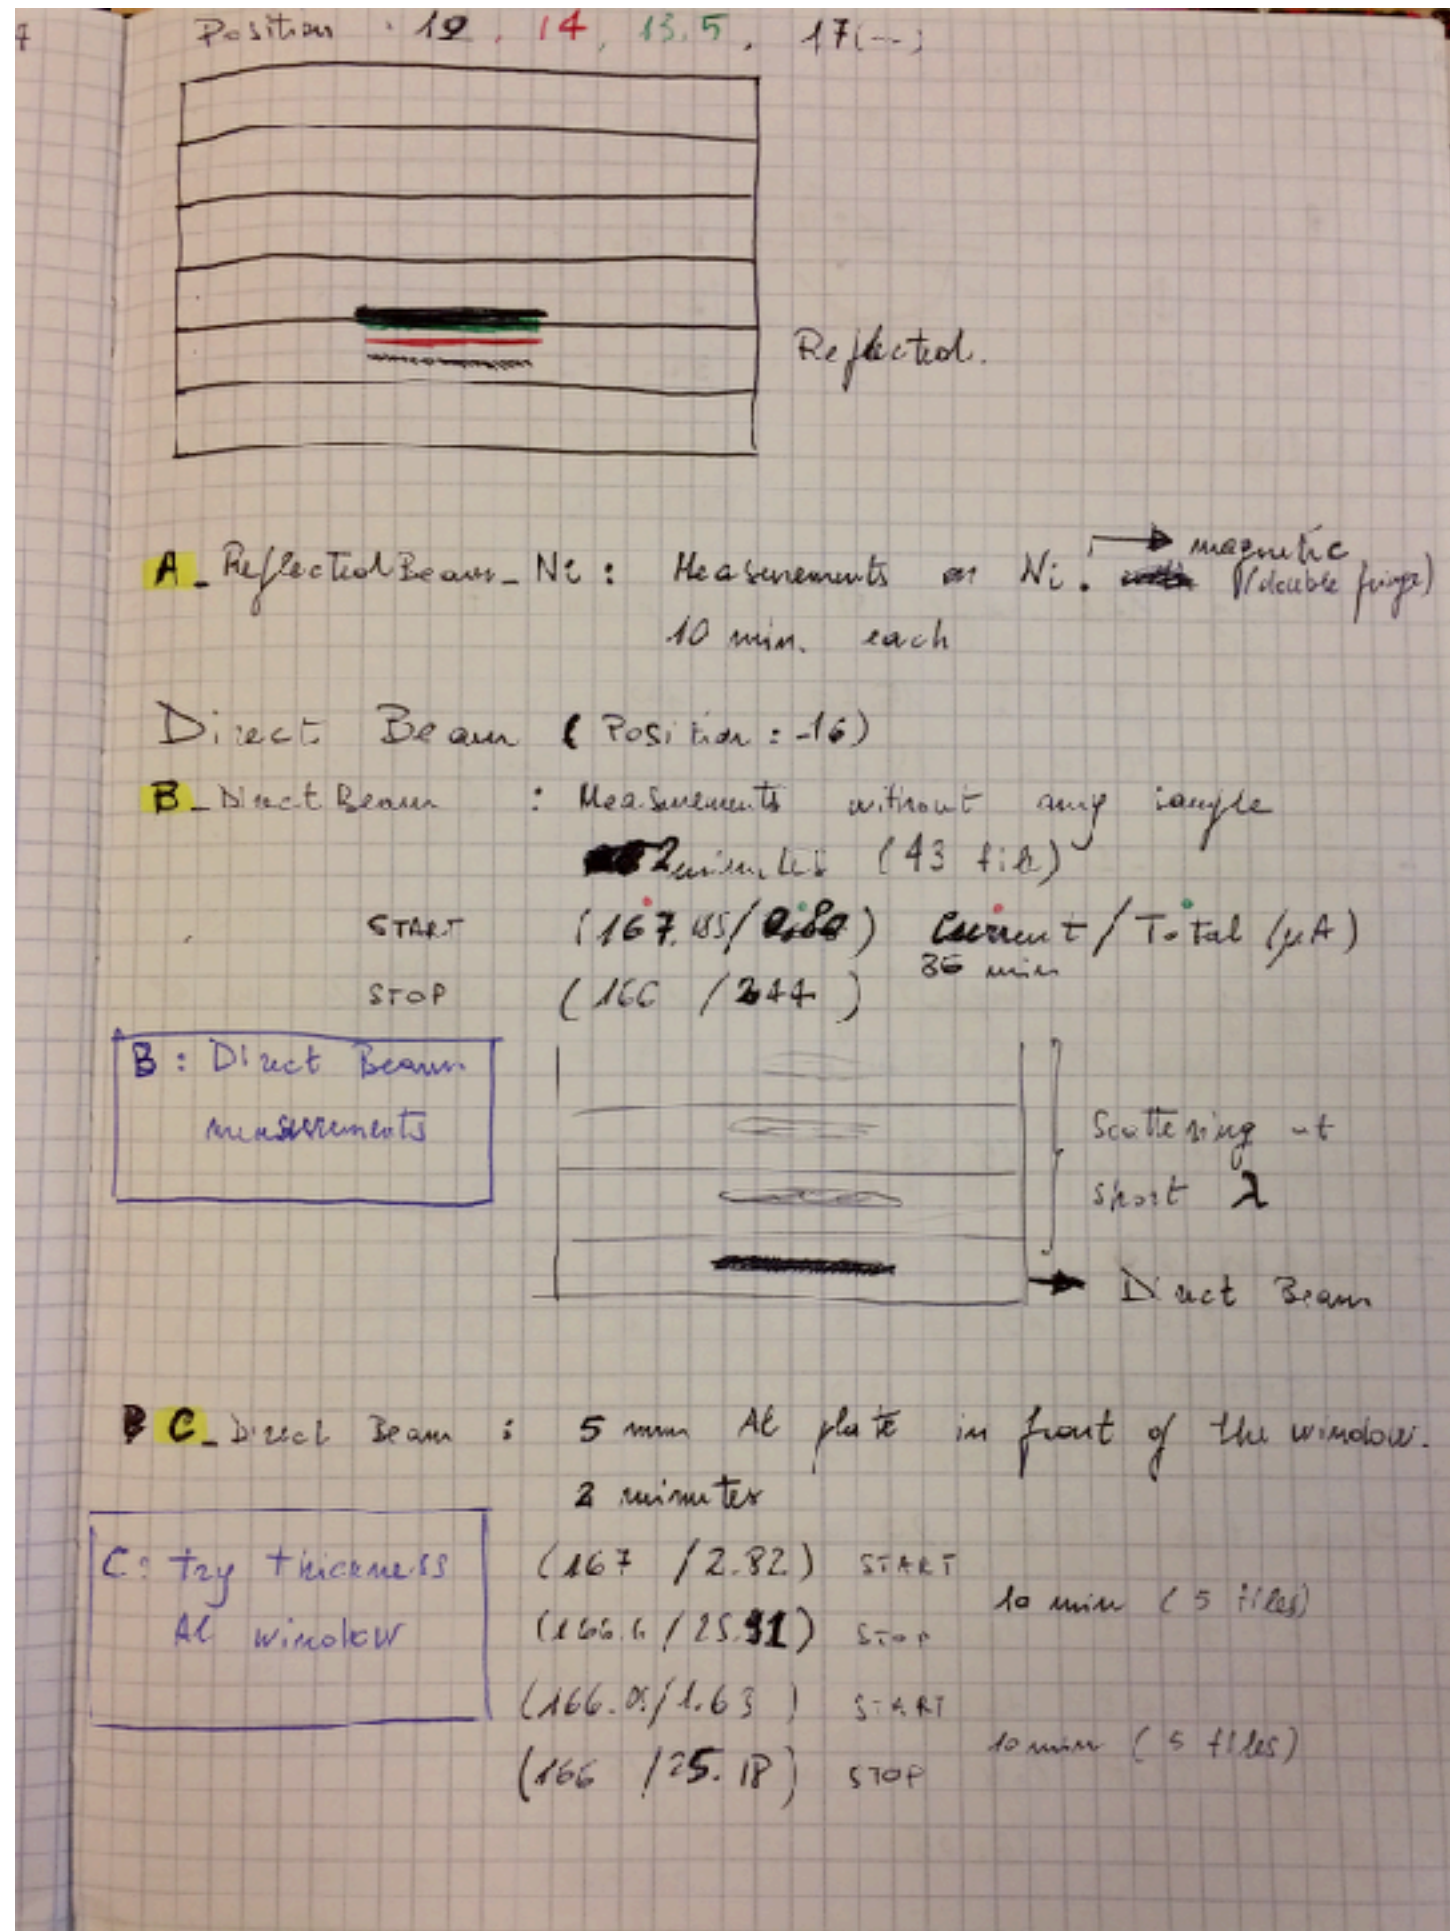 Position : 12, 14, 13.5, 17(--)
Reflected.
A_ReflectedBeam_Ni : Measurements on Ni. → magnetic
(double fringe)
10 min. each
Direct Beam (Position : -16)
B_Direct Beam : Measurements without any sample
2 minutes (43 file)
START (167. / ) Current / Total (µA)
36 min
STOP (166 / 244)
B : Direct Beam
measurements
Scattering at
short λ
→ Direct Beam
C_Direct Beam : 5 mm Al plate in front of the window.
2 minutes
C : try thickness
Al window
(167 / 2.82) START
10 min (5 files)
(166.6 / 25.91) STOP
(166.0 / 1.63) START
10 min (5 files)
(166 / 25.18) STOP